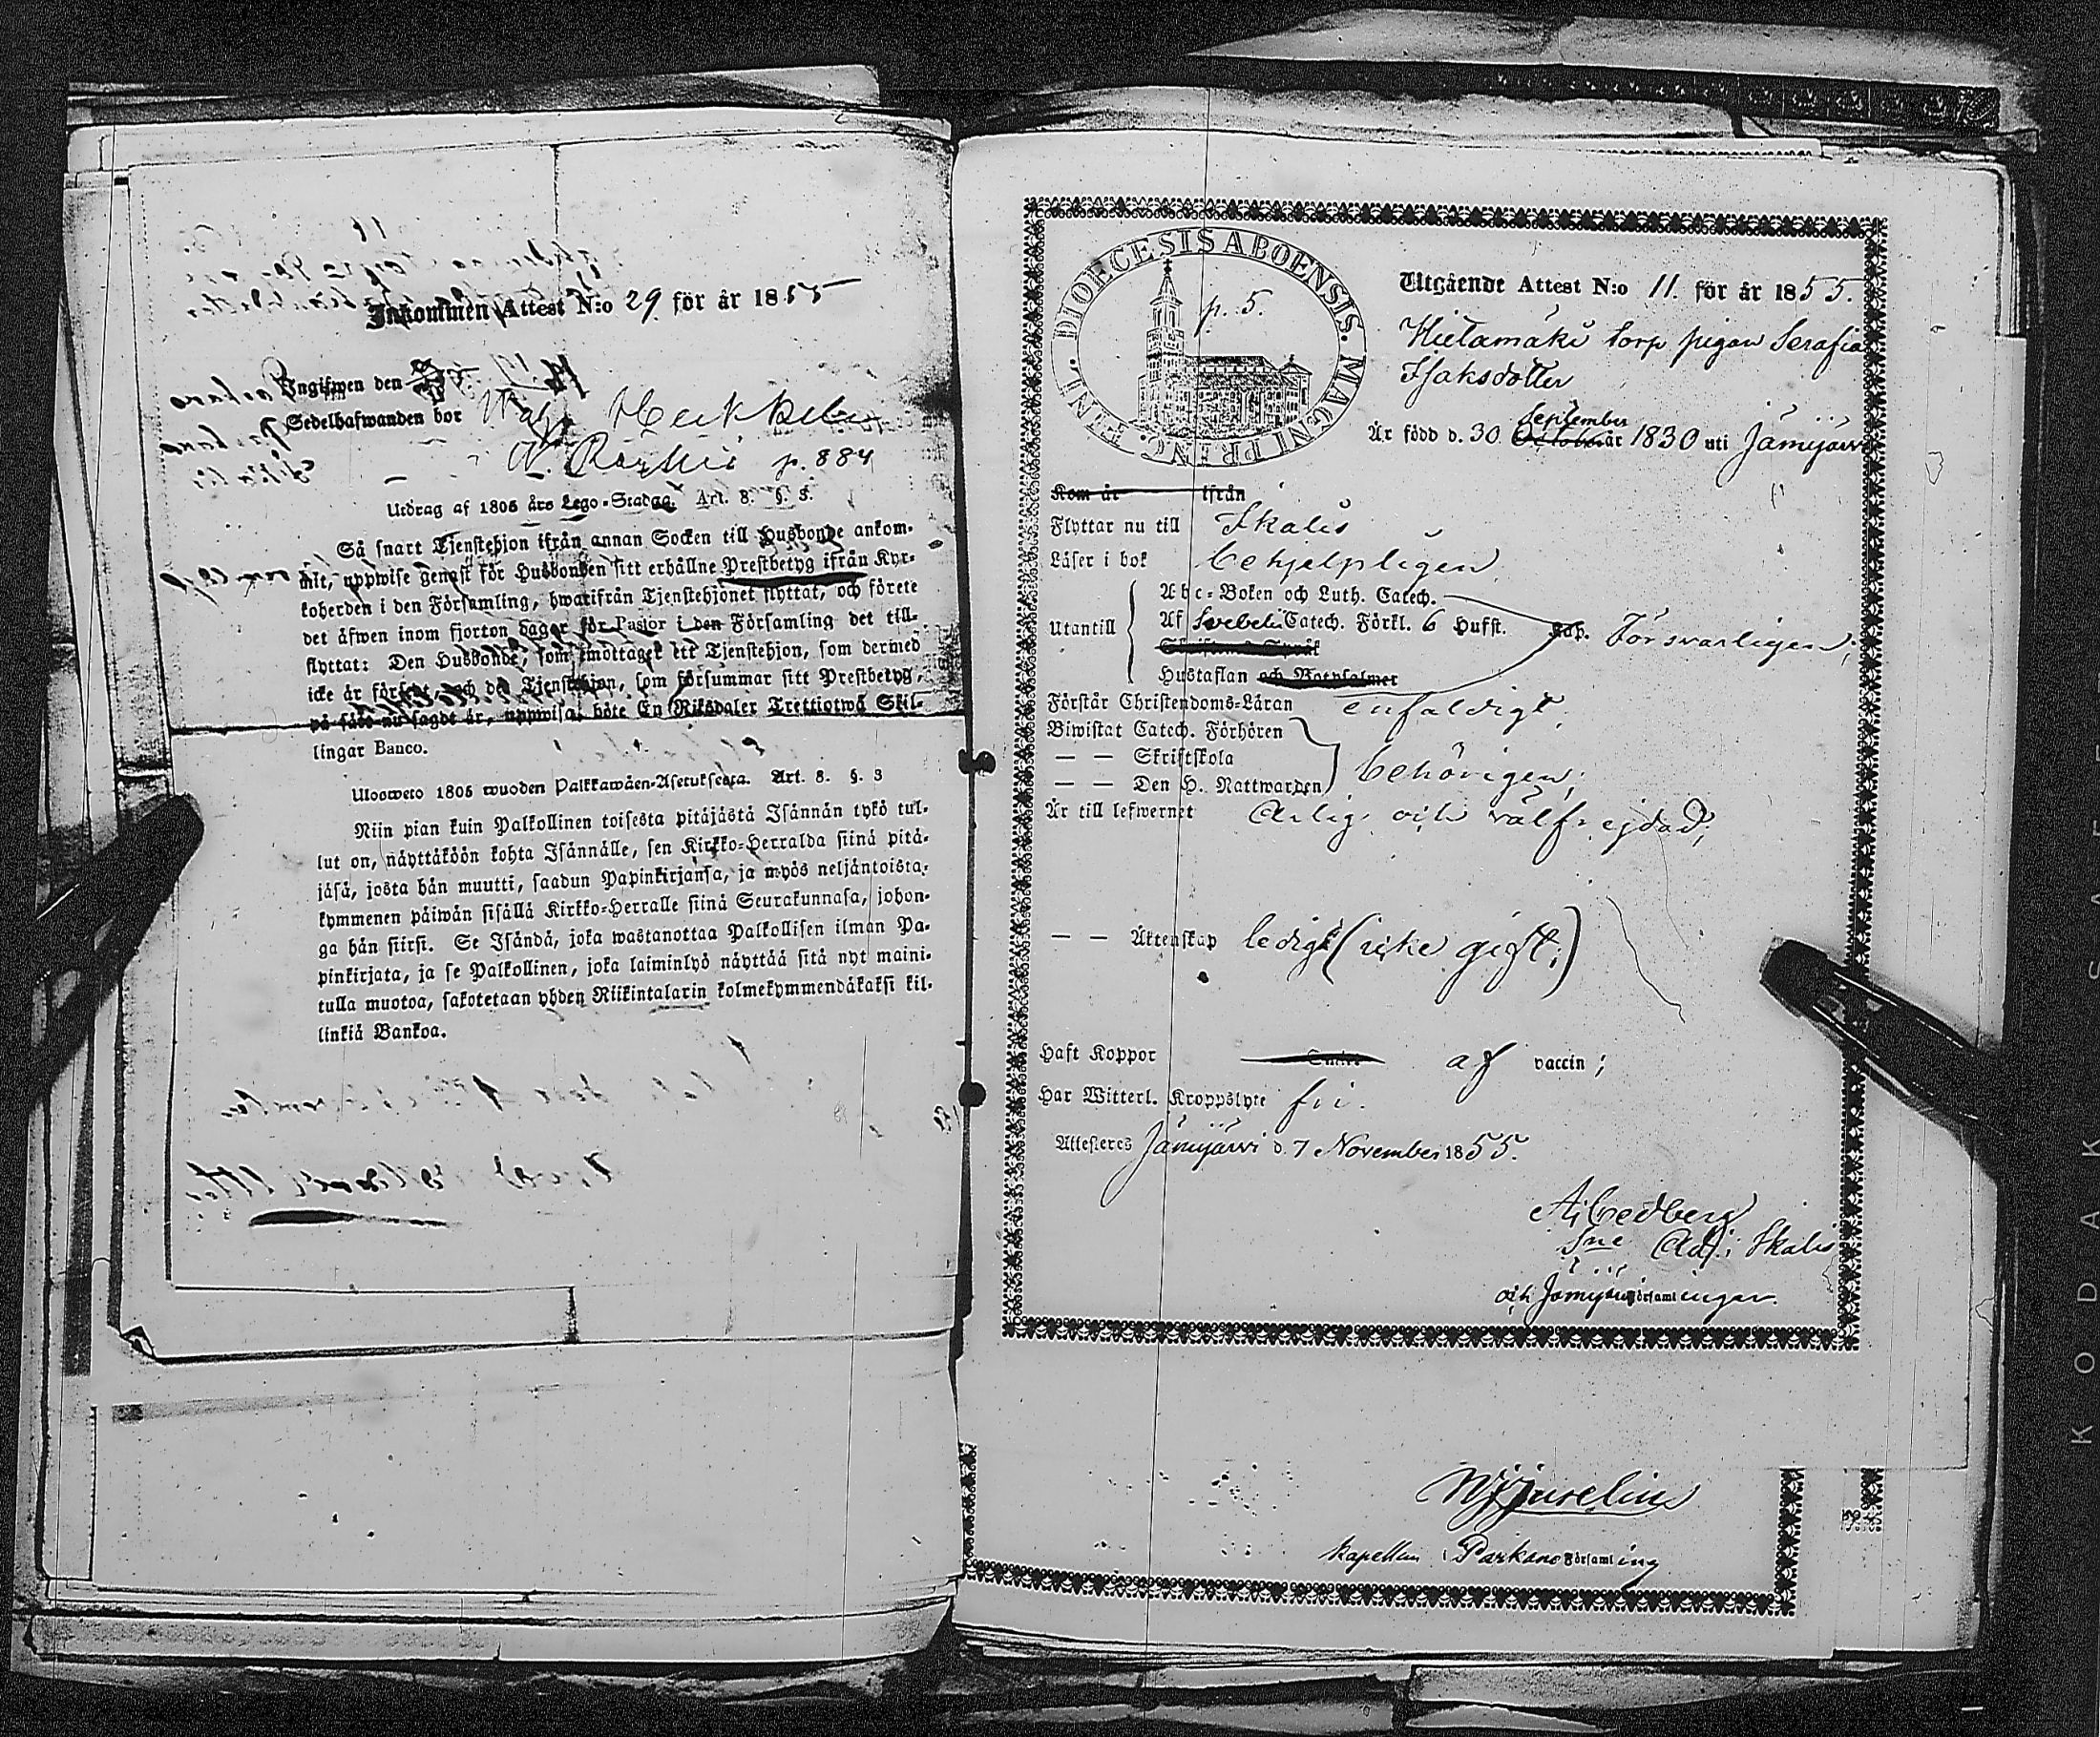 Inkommen Attest N:o 29 för år 1855
Ingifwen den
Sedelhafwanden bor
p. 884
Utdrag af 1805 års Lego-Stadga. Art. 8. §. 3.
Så snart Tjenstehjon ifrån annan Socken till Husbonde ankom-
mit, uppwise genast för Husbonden sitt erhållne Prestbetyg ifrån Kyr-
koherden i den Församling, hwarifrån Tjenstehjonet flyttat, och förete
det äfwen inom fjorton dagar för Pastor i den Församling det till-
flyttat: Den Husbonde, som emottager ett Tjenstehjon, som dermed
icke är försedt, och det Tjenstehjon, som försummar sitt Prestbetyg,
på sätt nu sagdt är, uppwisa, böte En Riksdaler Trettiotwå Skil-
lingar Banco.
Ulosweto 1805 wuoden Palkkawäen-Asetuksesta. Art. 8. §. 3
Niin pian kuin Palkollinen toisesta pitäjästä Isännän tykö tul-
lut on, näyttäköön kohta Isännälle, sen Kirkko-Herralda siinä pitä-
jäsä, josta hän muutti, saadun Papinkirjansa, ja myös neljäntoista-
kymmenen päiwän sisällä Kirkko-Herralle siinä Seurakunnasa, johon-
ga hän siirsi. Se Isändä, joka wastanottaa Palkollisen ilman Pa-
pinkirjata, ja se Palkollinen, joka laiminlyö näyttää sitä nyt maini-
tulla muotoa, sakotetaan yhden Riikintalarin kolmekymmendäkaksi kil-
linkiä Bankoa.
DIOECESIS ABOENSIS. MAGNI PRINC. FINL.
p. 5.
Utgående Attest N:o 11. för år 1855.
Hietamäki torp pigan Serafia
Isaksdotter
September
Är född d. 30. October år 1830 uti Jämijärvi
Kom år ifrån
Flyttar nu till Ikalis
Läser i bok behjelpligen
Utantill
Abc-Boken och Luth. Catech.
Af Svebelii Catech. Förkl. 6 Hufst. Kap. Försvarligen;
Hustaflan och Botpsalmer
Förstår Christendoms-Läran enfaldigt;
Biwistat Catech. Förhören
— — Skriftskola
— — Den H. Nattwarden behörigen;
Är till lefwernet ärlig och välfrejdad;
— — Äktenskap ledigt (icke gift;)
Haft Koppor af vaccin;
Har Witterl. Kroppslyte fri.
Attesteres Jämijärvi d. 7 November 1855.
A. Cedberg
Sne Adj. i Ikalis
och Jämijärvi Församlingar.
Kapellan i Parkano Församling